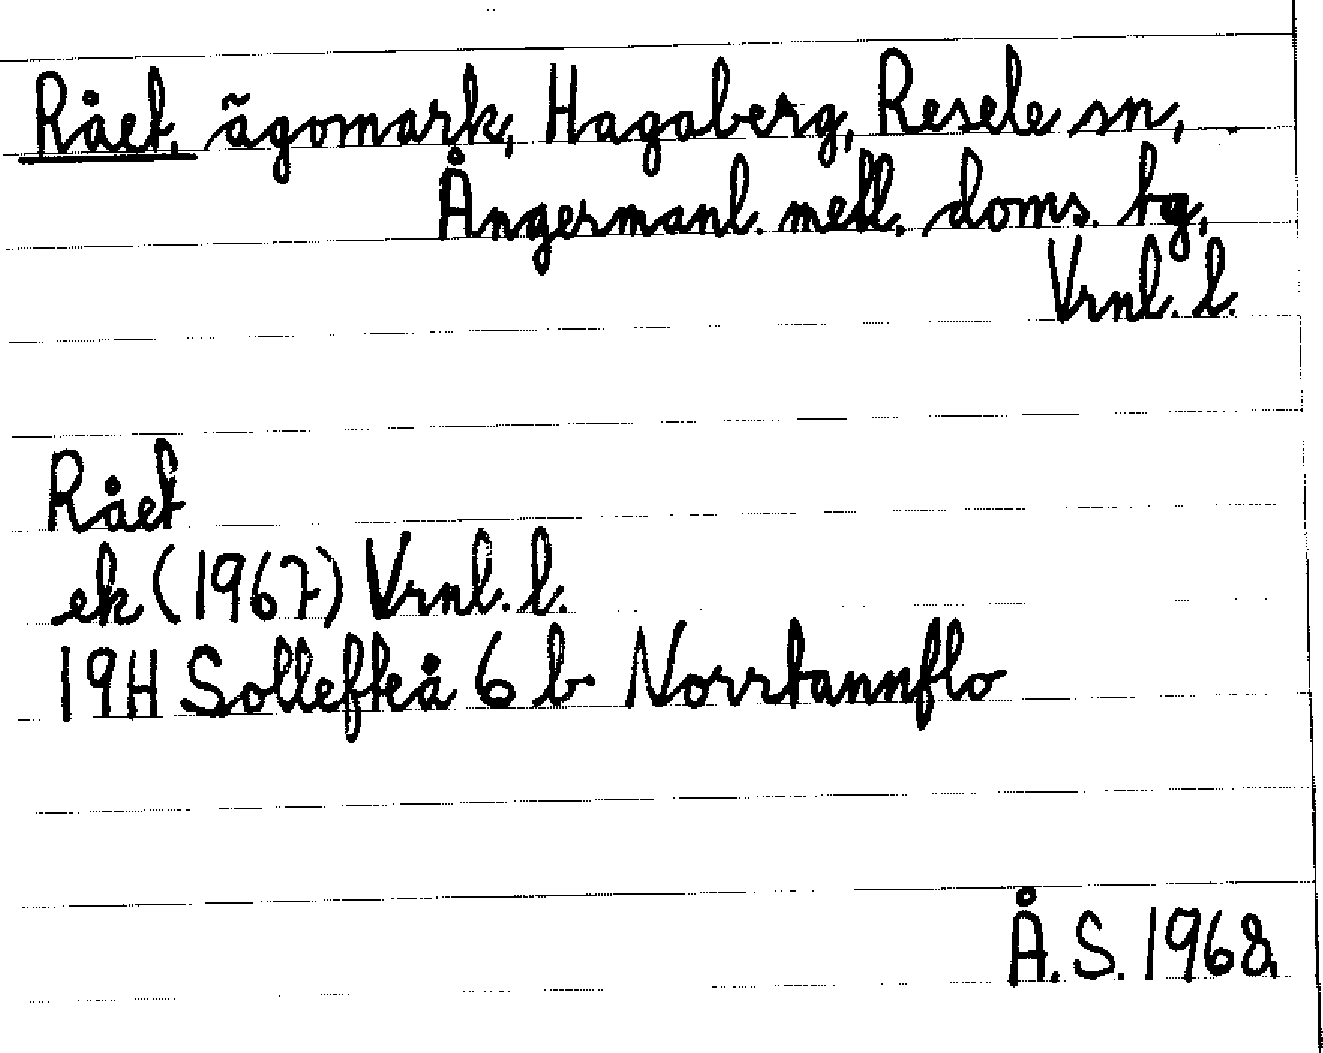 Rået, ägomark, Hagaberg, Resele sn,
Ångermanl. mell. doms. tg,
Vrnl. l.
Rået
ek (1967) Vrnl. l.
19H Sollefteå 6 b Norrtannflo
Å. S. 1968.